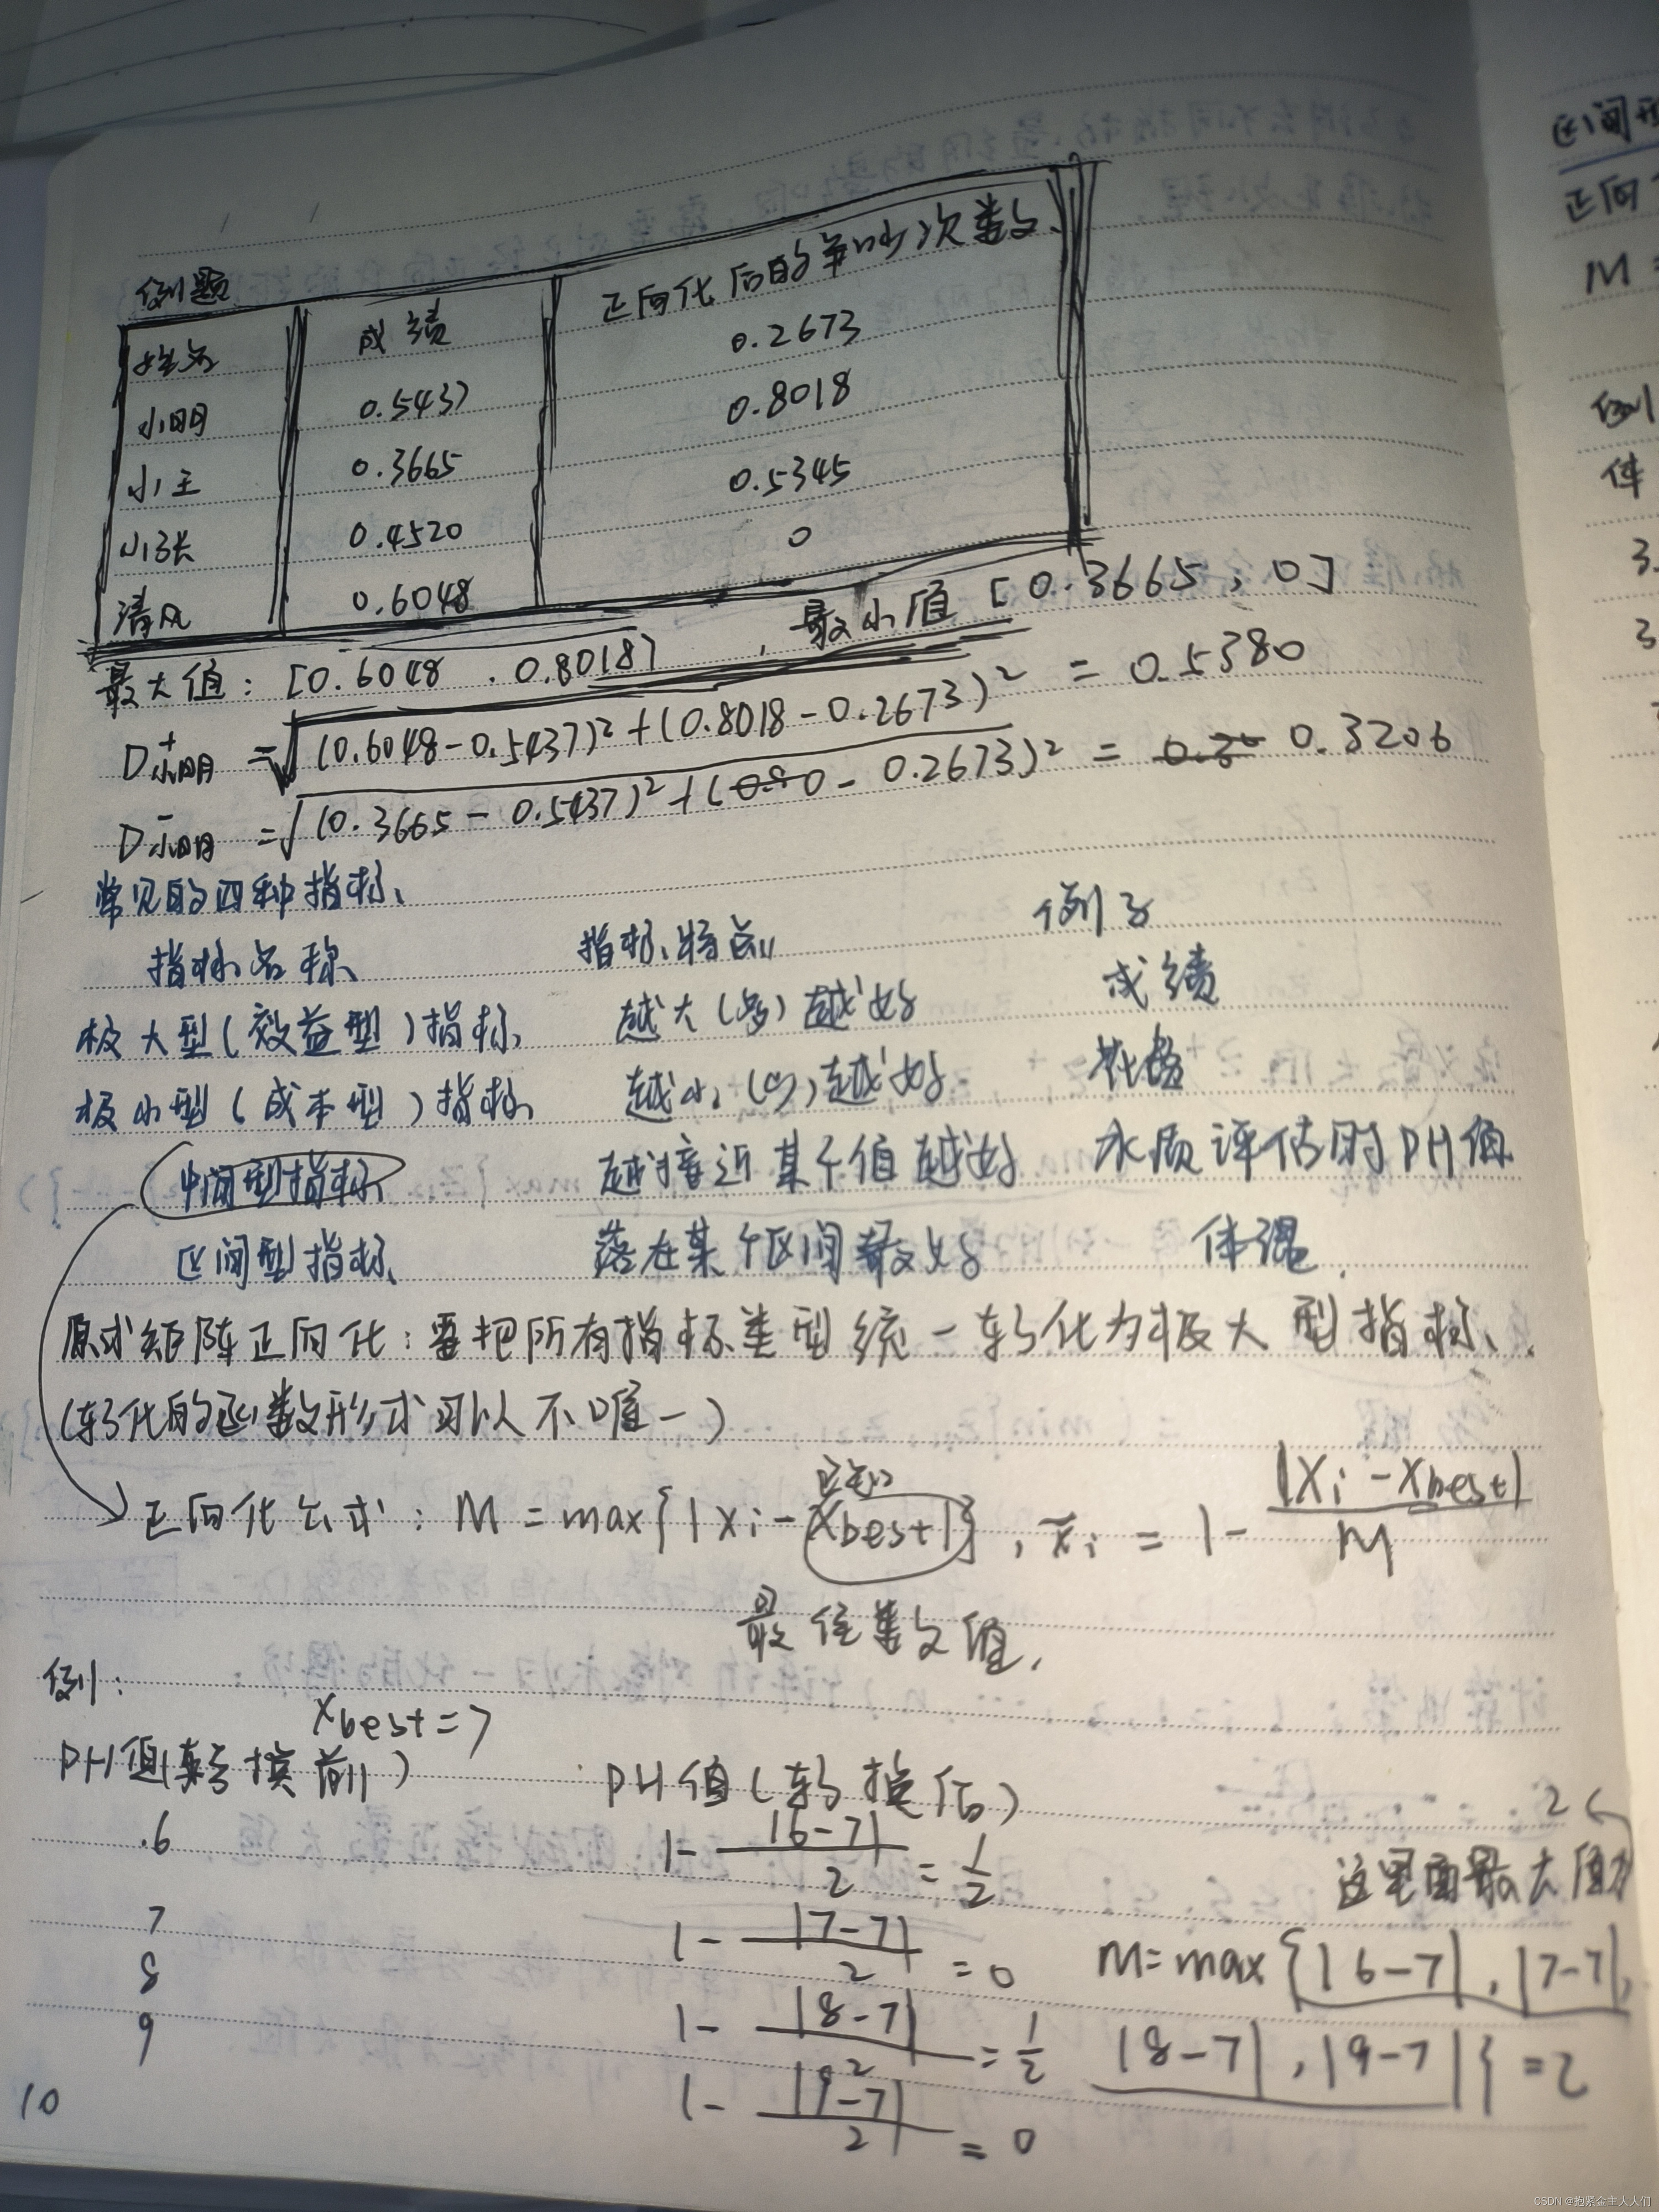 例题
姓名 成绩 正向化后的争吵次数
小明 0.5437 0.2673
小王 0.3665 0.8018
小张 0.4520 0.5345
清风 0.6048 0
最大值：[0.6048 , 0.8018] , 最小值 [0.3665, 0]
D⁺小明 = √(0.6048-0.5437)²+(0.8018-0.2673)² = 0.5380
D⁻小明 = √(0.3665-0.5437)²+(0-0.2673)² = 0.3206
常见的四种指标
指标名称 指标特点 例子
极大型(效益型)指标 越大(多)越好 成绩
极小型(成本型)指标 越小(少)越好
中间型指标 越接近某个值越好 水质评估时PH值
区间型指标 落在某个区间最好 体温
原式矩阵正向化：要把所有指标类型统一转化为极大型指标、
(转化的函数形式可以不唯一)
正向化公式：M = max{|xi-xbest|}, x̃i = 1- |xi-xbest|/M
最佳数值.
例：
xbest=7
PH值(转换前) PH值(转换后)
6 1- |6-7|/2 = 1/2
7 1- |7-7|/2 = 0
8 1- |8-7|/2 = 1/2
9 1- |9-7|/2 = 0
2
这里面最大值为
M=max{|6-7|, |7-7|,
|8-7|, |9-7|} =2
10
区间
正向
M =
例
体
3.
3
CSDN @抱紧金主大大们